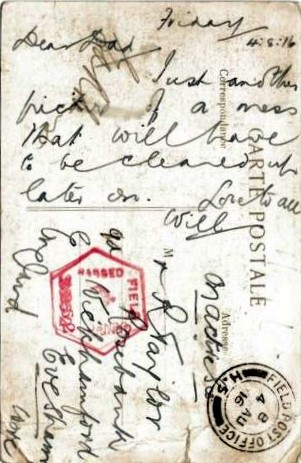 Friday
4.8.16
Dear Dad
Just another
picture of a mess
that will have
to be cleaned up
later on. Love to all
Will
CARTE POSTALE
Correspondance
Adresse
Mr Taylor
Rosebank
Evesham
England
PASSED
FIELD
CENSOR
FIELD POST OFFICE
H.5
4 AU
16